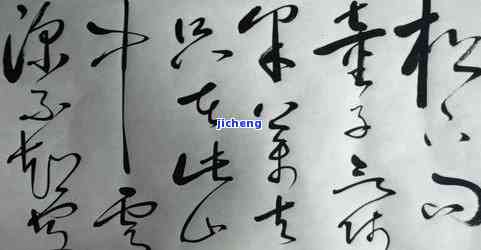 松下問
童子言師
采藥去
只在此山
中雲
深不知處
jicheng